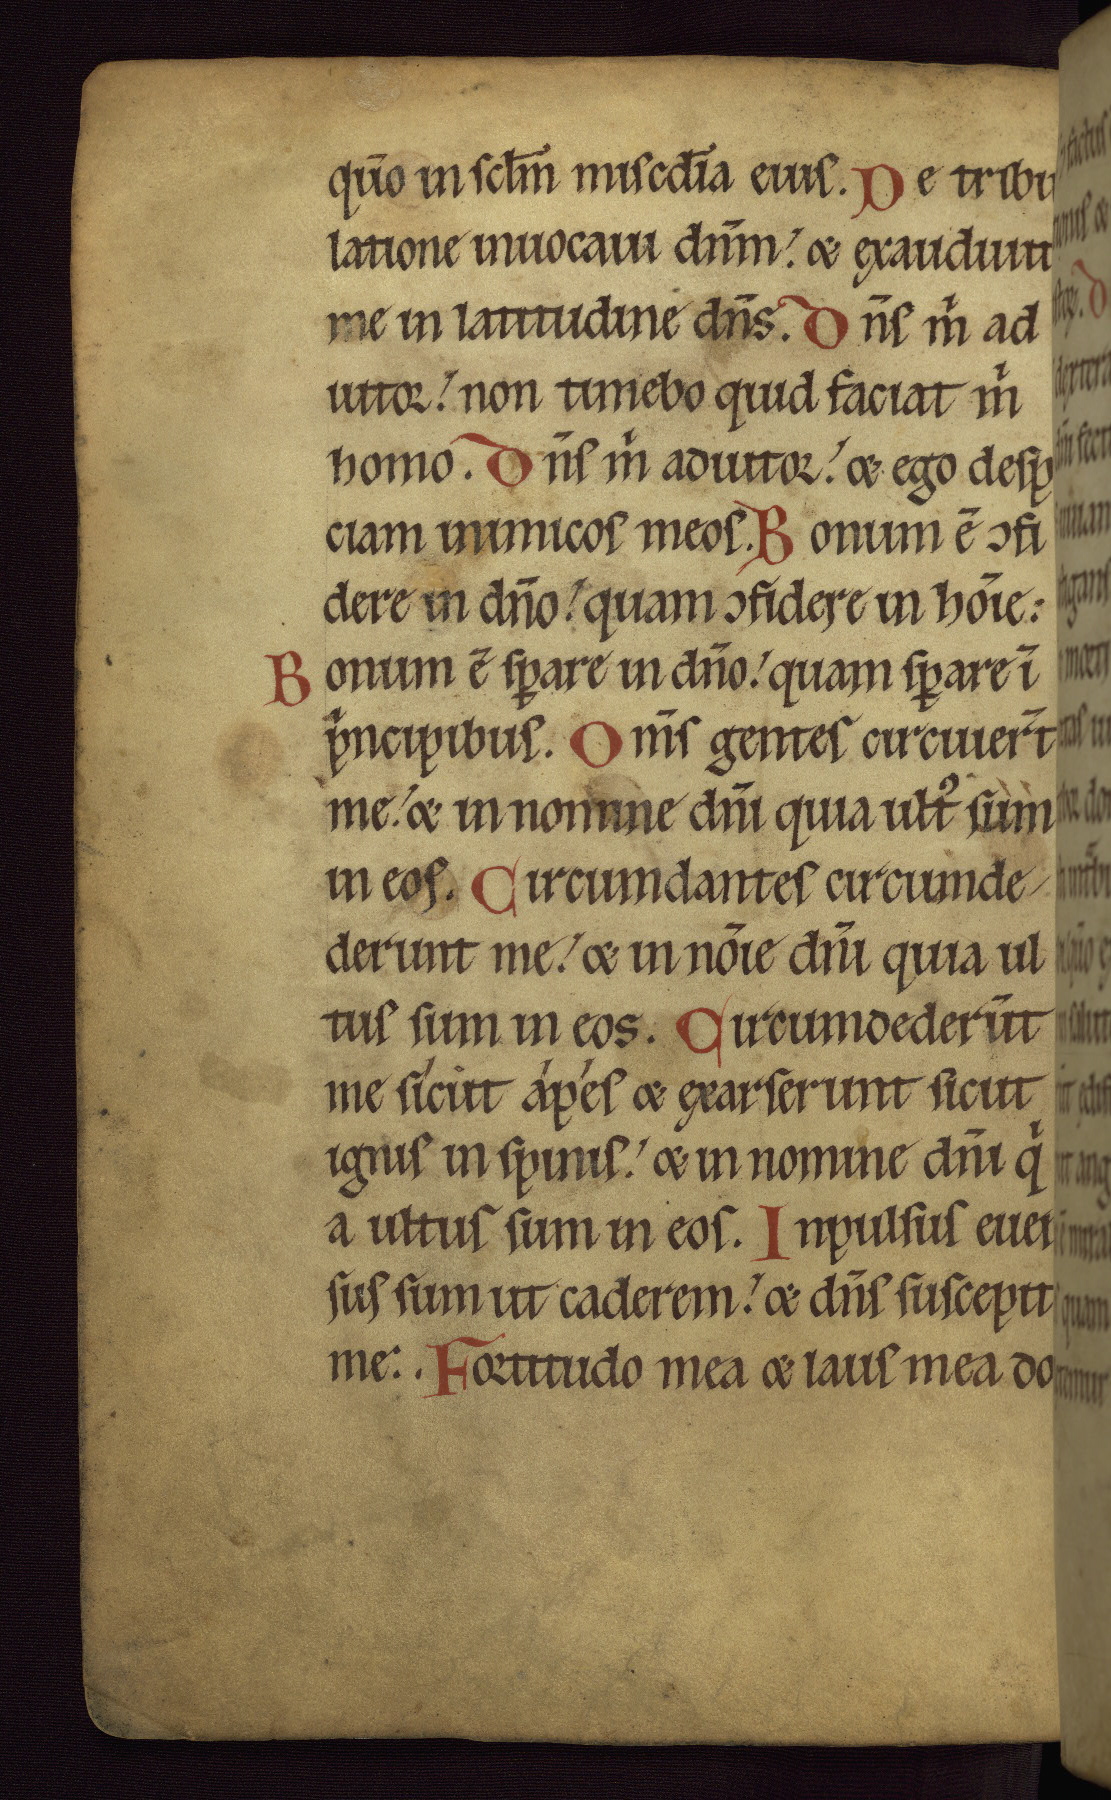 qūo in sclm̄ miscdīa eius. De tribu
latione inuocaui dnm̄: & exaudiuit
me in latitudine dn̄s. Dn̄s m̍ ad
iutor: non timebo quid faciat m̍
homo. Dn̄s m̍ adiutor: & ego desp̍
ciam inimicos meos. Bonum ē ɔfi
dere in dn̄o: quam ɔfidere in hōie:
Bonum ē sꝑare in dn̄o: quam sꝑare ī
p̍ncipibus. Om̄s gentes circuier̄t
me: & in nomine dn̄i quia ult᾿ sum
in eos. Circumdantes circumde-
derunt me: & in nōie dn̄i quia ul
tus sum in eos. Circumdederūt
me sicut apes & exarserunt sicut
ignis in spinis: & in nomine dn̄i q̍
a ultus sum in eos. Inpulsus euer
sus sum ut caderem: & dn̄s suscepit
me: . Fortitudo mea & laus mea do